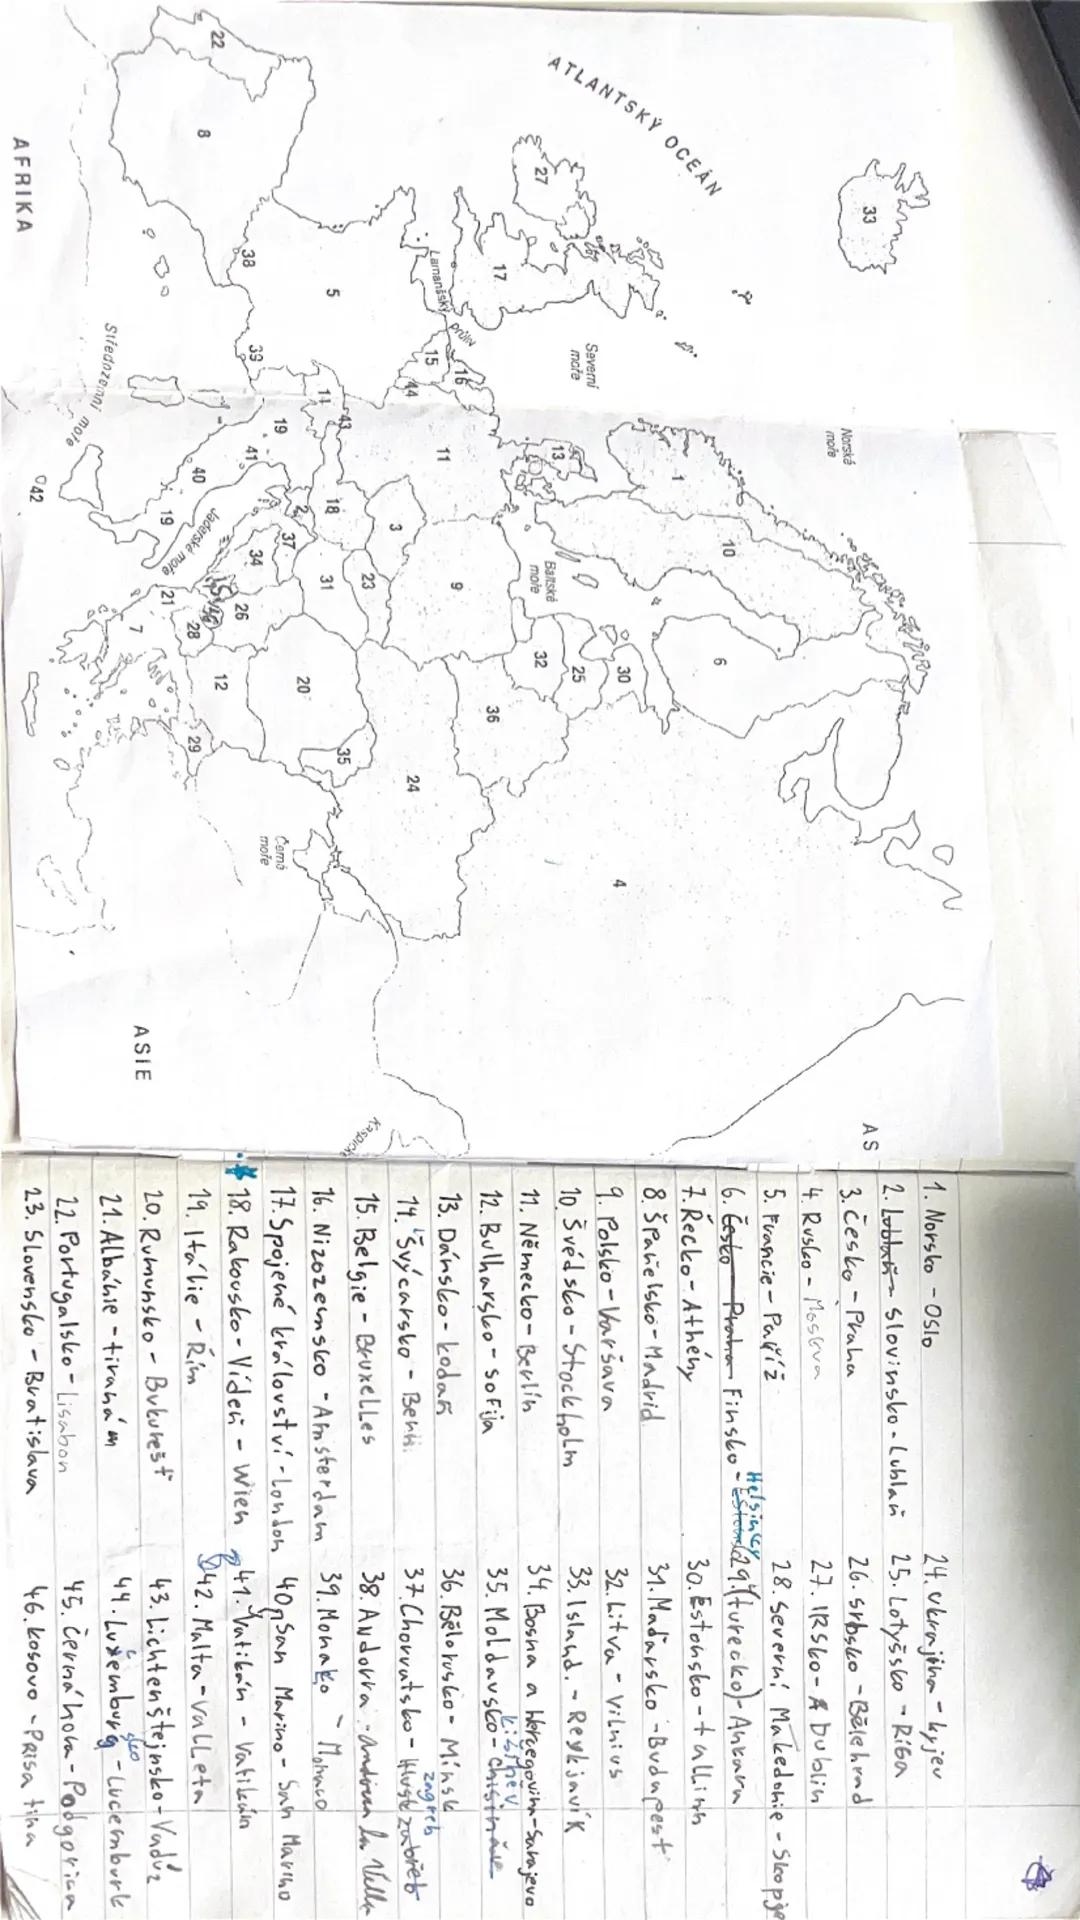 ATLANTSKÝ OCEÁN
Norské
moře
Severní
moře
Baltské
moře
Lamanšský průliv
Jaderské moře
Středozemní moře
Černé
moře
AFRIKA
ASIE
AS
33
27
17
1
10
6
30
25
32
4
13
16
15
44
5
11
9
36
3
23
24
22
8
38
39
14
43
18
31
35
20
19
41
2
37
34
26
40
19
21
28
12
7
29
42
1. Norsko - Oslo
2. Slovinsko - Lublaň
3. Česko - Praha
4. Rusko - Moskva
5. Francie - Paříž
6. Česko Praha Finsko - Helsinky
7. Řecko - Athény
8. Španělsko - Madrid
9. Polsko - Varšava
10. Švédsko - Stockholm
11. Německo - Berlín
12. Bulharsko - sofija
13. Dánsko - kodaň
14. Švýcarsko - Bern
15. Belgie - Bruxelles
16. Nizozemsko - Amsterdam
17. Spojené království - London
18. Rakousko - Vídeň - Wien
19. Itálie - Řím
20. Rumunsko - Bukurešť
21. Albánie - tirana
22. Portugalsko - Lisabon
23. Slovensko - Bratislava
24. Ukrajina - kyjev
25. Lotyšsko - Riga
26. Srbsko - Bělehrad
27. IRSko - Dublin
28. Severní Makedonie - Skopje
29. (turecko) - Ankara
30. Estonsko - tallinn
31. Maďarsko - Budapest
32. Litva - Vilnius
33. Island. - Reykjavík
34. Bosna a Hercegovina - Sarajevo
35. Moldavsko - kišiněv
36. Bělorusko - Minsk
37. Chorvatsko - zagreb
38. Andorra - andorra la Vella
39. Monako - Monaco
40. San Marino - San Marino
41. Vatikán - Vatikán
42. Malta - valleta
43. Lichtenštejnsko - Vadúz
44. Luxemburg - Lucemburk
45. Černá hora - Podgorica
46. kosovo - Prisa tina